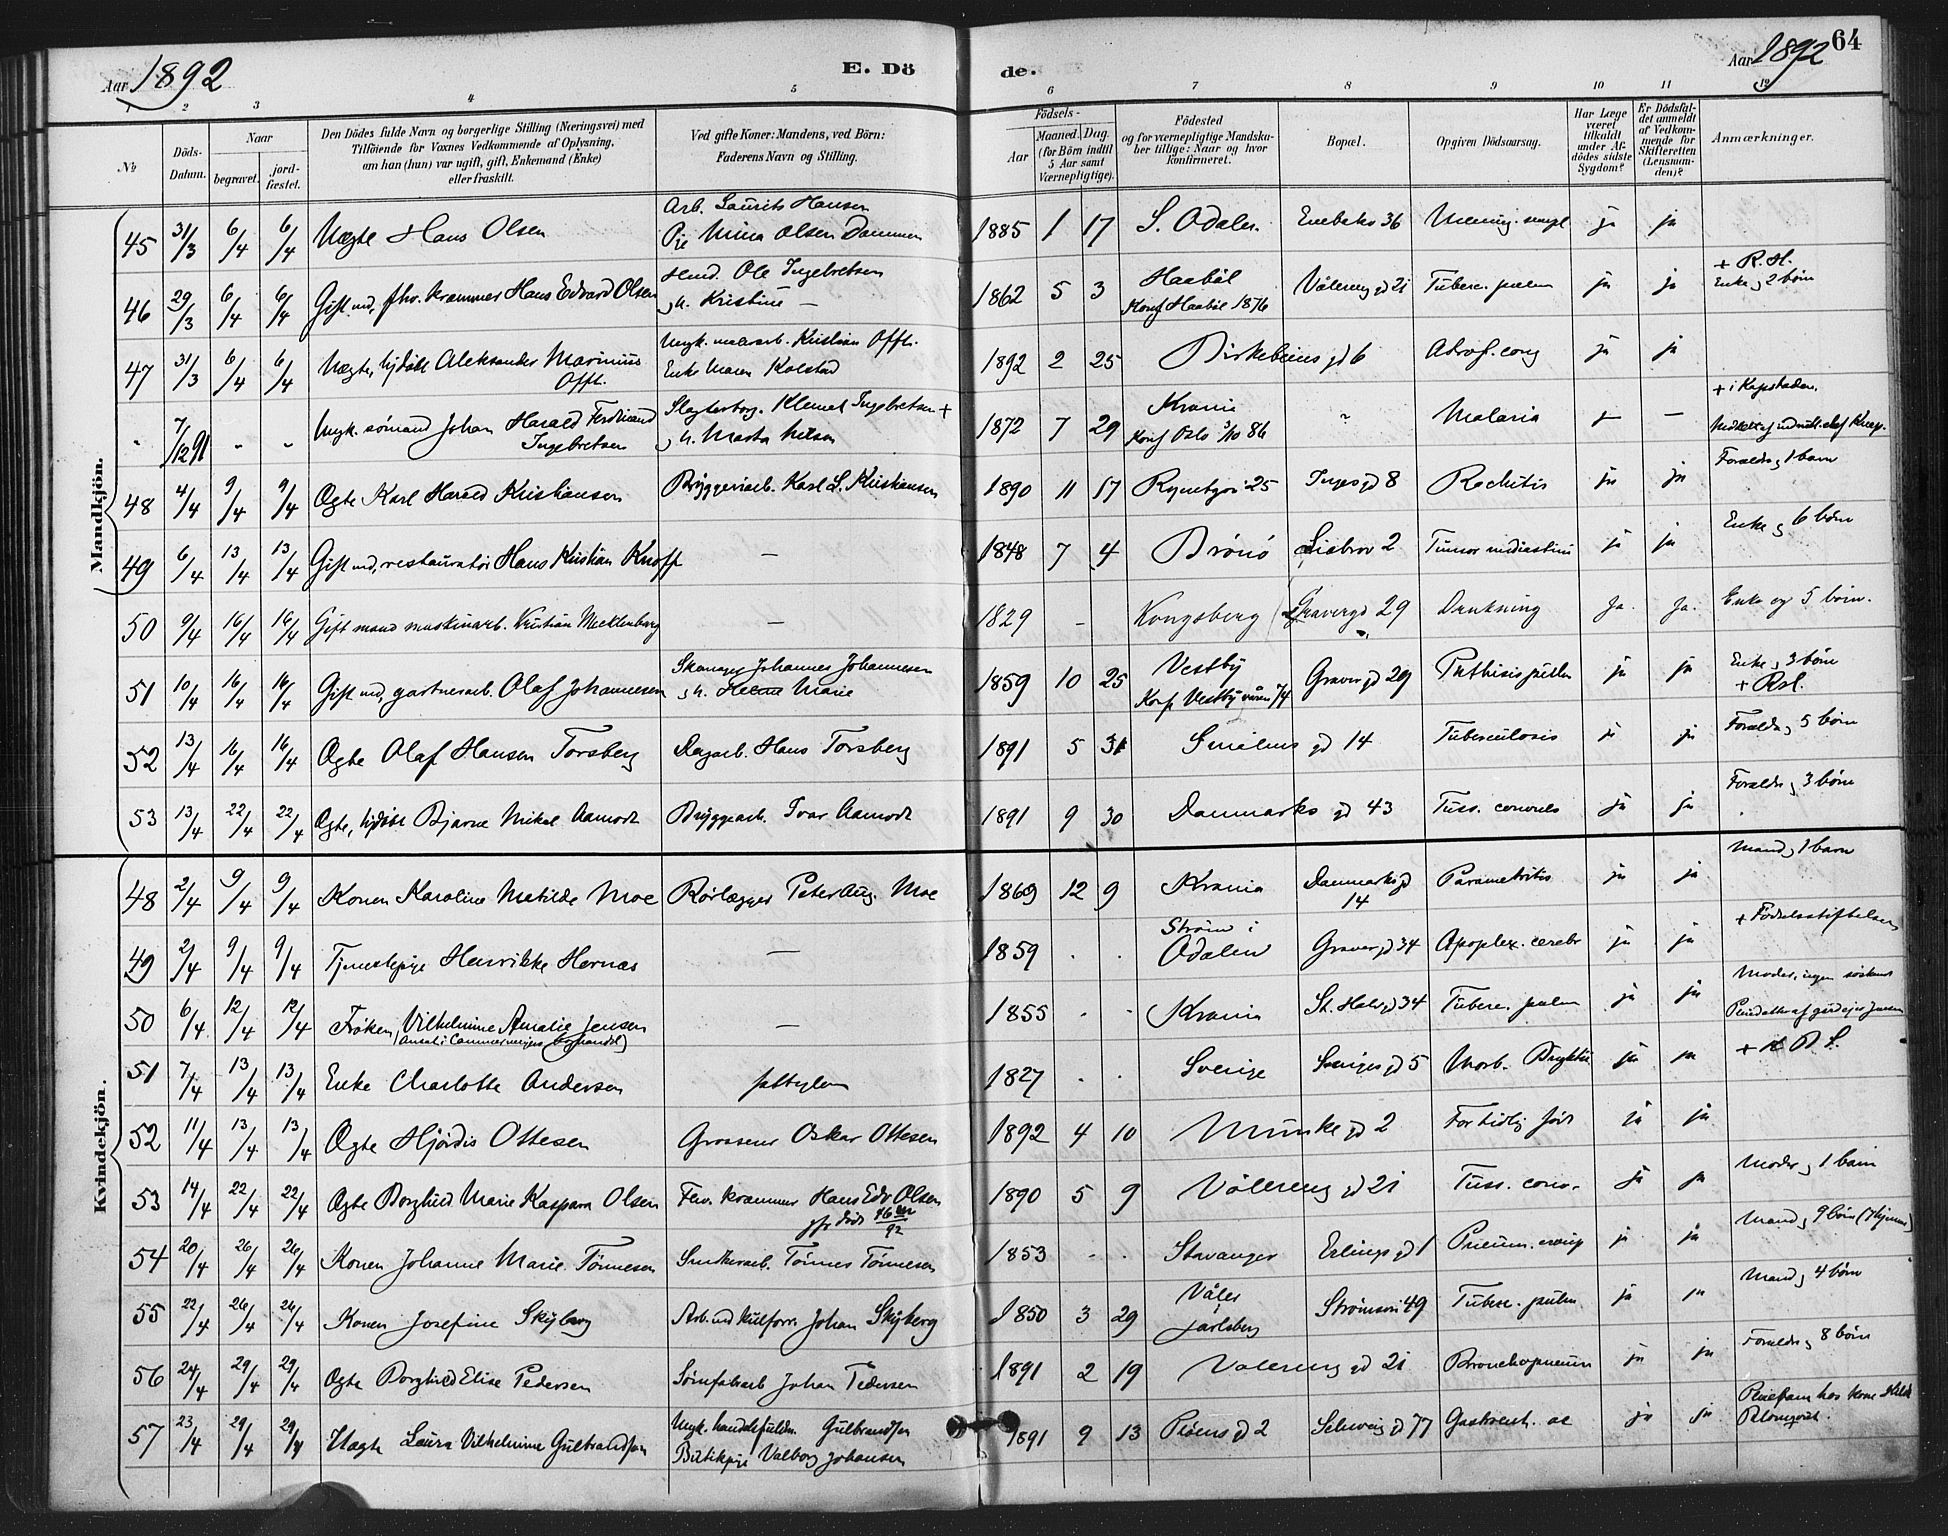 Aar 1892
E. Döde.
Aar 1892
64
1 2 3 4 5 6 7 8 9 10 11 12
№
Döds-Datum.
Naar
begravet.
jord-fæstet.
Den Dödes fulde Navn og borgerlige Stilling (Næringsvei) med
Tilföiende for Voxnes Vedkommende af Oplysning,
om han (hun) var ugift, gift, Enkemand (Enke)
eller fraskilt.
Ved gifte Koner: Mandens, ved Börn:
Faderens Navn og Stilling.
Födsels-
Aar
Maaned. Dag.
(for Börn indtil
5 Aar samt
Værnepligtige).
Födested
og for værnepligtige Mandska-
ber tillige: Naar og hvor
konfirmeret.
Bopæl.
Opgiven Dödsaarsag.
Har Læge
været
tilkaldt
under Af-
dödes sidste
Sygdom?
Er Dödsfal-
det anmeldt
af Vedkom-
mende for
Skifteretten
(Lensman-
den)?
Anmærkninger.
Mandkjön.
45 31/3 6/4 6/4 Uægte Hans Olsen Arb. Laurits Hansen
Pige Mina Olsen Dammen 1885 1 17 S. Odalen. Enebaks 36 ja ja
46 29/3 6/4 6/4 Gift md, fhv. kræmmer Hans Edvard Olsen Ole Ingebretsen
Kristine — 1862 5 3 Haabøl
Konf Haabøl 1876 Vålereng gd 21 Tuberc. pulm ja ja + R. H.
Enke og 2 børn
47 31/3 6/4 6/4 Uægte, Aleksander Marinius
Offt. Ungk. malerarb. Kristian Offt.
Enke Maren Kolstad 1892 2 25 Birkebeins gd 6 Atrof. cong ja ja
" 7/12 91 " " Ungk. sømand Johan Harald Ferdinand
Ingebretsen Slagterborg. Klemet Ingebretsen +
Marta Nilsen 1872 7 29 Krania
Konf Oslo 3/10 86 Malaria — + i Kapstaden.
48 4/4 9/4 9/4 Ægte Karl Harald Kristiansen Bryggeriarb. Karl L. Kristiansen 1890 11 17 25 Inges gd 8 Rachitis ja ja Forældre, 1 barn
49 6/4 13/4 13/4 Gift md, restauratør Hans Kristian Knoff — 1848 7 4 Brønø Liabrov 2 Tumor mediastini ja ja Enke og 6 børn
50 9/4 16/4 16/4 Gift mand maskinarb. Kristian Mecklenburg — 1829 - Kongsberg Gravergd 29 Drukning Ja. Ja. Enke og 5 børn.
51 10/4 16/4 16/4 Gift md, gartnerarb. Olaf Johannesen Skomager Johannes Johannesen
Marie 1859 10 25 Vestby
Konf Vestby våren 74 Graver gd 29 Phthisis pulm ja ja Enke og 3 børn
52 13/4 16/4 16/4 Ægte Olaf Hansen Torsberg Dagarb. Hans Torsberg 1891 5 31 Smålens gd 14 Tuberculosis ja ja Forældre, 5 børn
53 13/4 22/4 22/4 Ægte, Bjarne Mikal Aamodt Bryggearb. Ivar Aamodt 1891 9 30 Danmarks gd 43 Tuss. convuls ja ja Forældre, 3 børn
Kvindekjön.
48 2/4 9/4 9/4 Konen Karoline Matilde Moe Rørlægger Peter Aug. Moe 1869 12 9 Krania Danmarks gd
14 Parametritis ja ja Mand, 1 barn
49 2/4 9/4 9/4 Tjenestepige Henrikke Hernæs — 1859 . . Strøm i
Odalen Graver gd 34 Apoplex. cerebr ja ja + Fødselsstiftelsen
50 6/4 12/4 12/4 Frøken, Vilhelmine Amalie Jensen
— 1855 . . Krania St. Halvgd 34 Tuberc. pulm ja ja Moder, ingen søskend
51 7/4 13/4 13/4 Enke Charlotte Andersen fattiglem 1827 . . Sverige Sveriges gd 5 Morb. Brightii ja ja
52 11/4 13/4 13/4 Ægte Hjørdis Ottesen Grosserer Oskar Ottesen 1892 4 10 Munke gd 2 For tidlig født ja ja
53 14/4 22/4 22/4 Ægte Borghild Marie Kaspara Olsen Fhv. kræmmer Hans Edv Olsen
jfr døds 46 m/92 1890 5 9 Vålereng gd 21 Tuss. conv. ja ja Moder, 1 barn
54 20/4 26/4 26/4 Konen Johanne Marie Tønnesen Snedkerarb. Tønnes Tønnesen 1853 . . Stavanger Erlings gd 1 Pneum. croup ja ja Mand, 9 børn (7 hjemme)
55 22/4 26/4 26/4 Konen Josefine Skyberg Arb. Johan Skyberg 1850 3 29 Våler
Jarlsberg Strømsvei 49 Tuberc. pulm ja ja Mand, 4 børn
56 24/4 29/4 29/4 Ægte Borghild Elise Pedersen Sømfabrarb Johan Pedersen 1891 2 19 Valereng gd 21 Bronchopneum ja ja Forældre, 8 børn
57 23/4 29/4 29/4 Uægte Laura Vilhelmine Gulbrandsen Ungk. Gulbrandsen
Butikpige Valborg Johansen 1891 9 13 Piløens gd 2 Schweig gd 77 Gastroent. ac ja ja